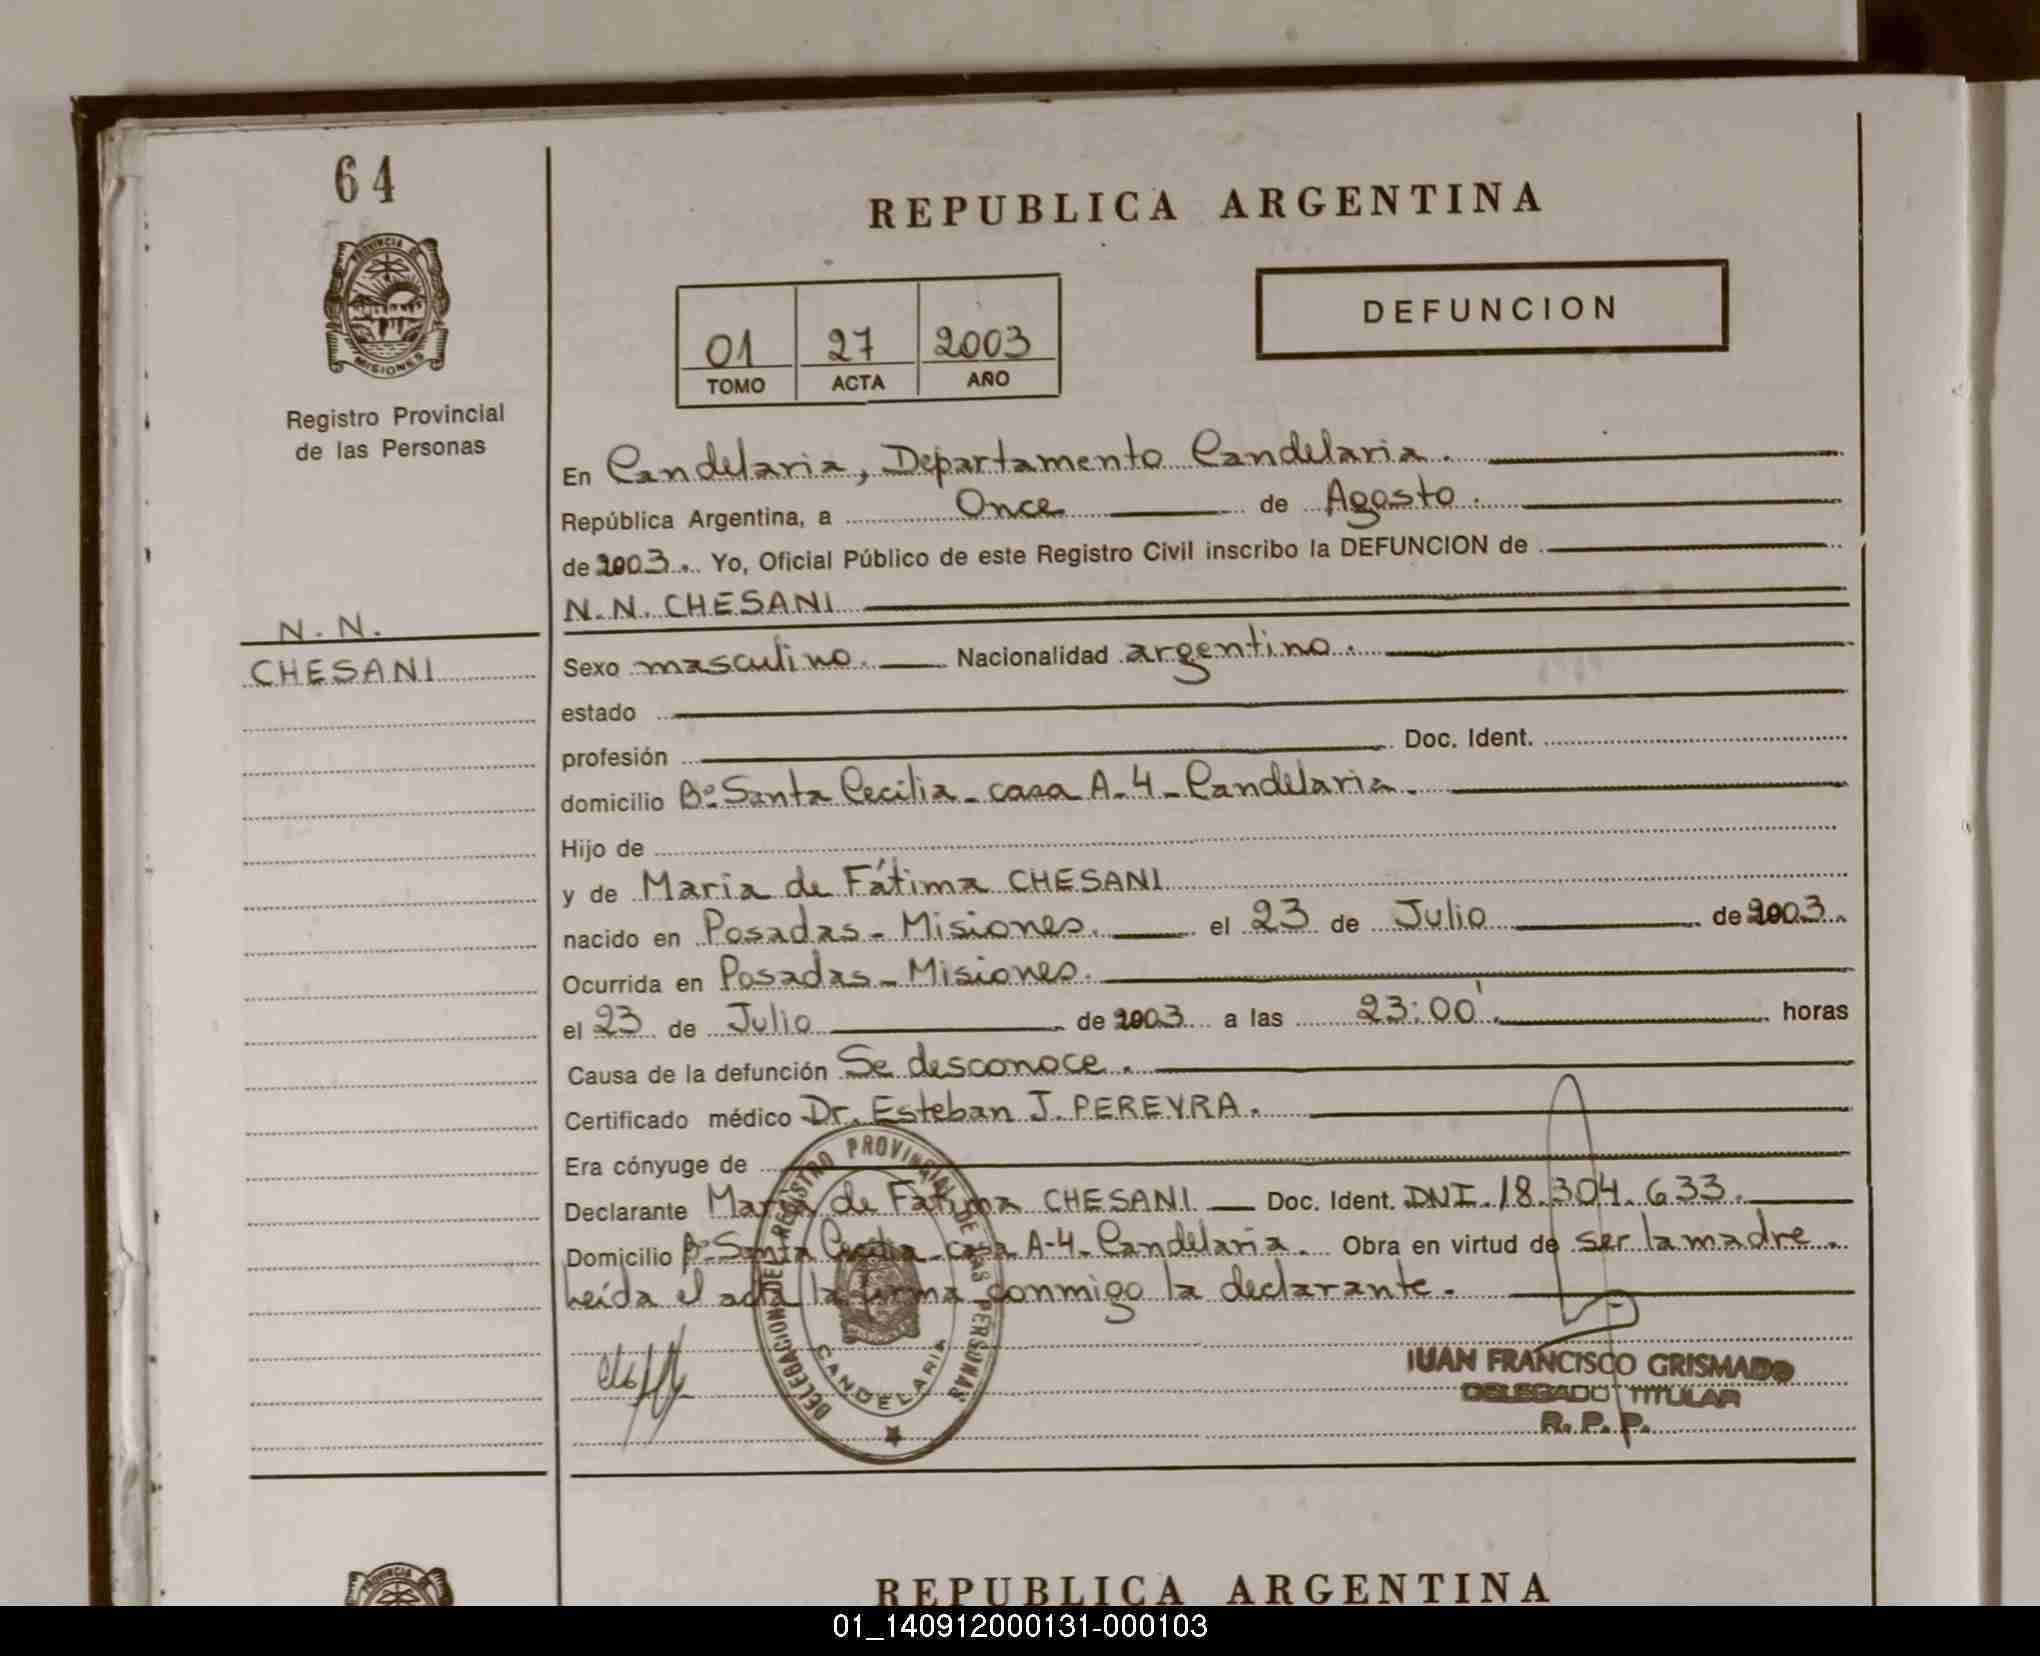 64
REPUBLICA ARGENTINA
PROVINCIA DE
MISIONES
Registro Provincial
de las Personas
01 27 2003
TOMO ACTA AÑO
DEFUNCION
En Candelaria, Departamento Candelaria.
República Argentina, a Once de Agosto.
de 2003. Yo, Oficial Público de este Registro Civil inscribo la DEFUNCION de
N.N. CHESANI
N.N.
CHESANI
Sexo masculino. Nacionalidad argentino.
estado
profesión Doc. Ident.
domicilio Bº Santa Cecilia - casa A-4 - Candelaria.
Hijo de
y de Maria de Fátima CHESANI
nacido en Posadas - Misiones. el 23 de Julio de 2003.
Ocurrida en Posadas - Misiones.
el 23 de Julio de 2003 a las 23:00'. horas
Causa de la defunción Se desconoce.
Certificado médico Dr. Esteban J. PEREYRA.
Era cónyuge de
Declarante Maria de Fátima CHESANI Doc. Ident. DNI. 18.304.633.
Domicilio Bº Santa Cecilia - casa A-4 - Candelaria. Obra en virtud de ser la madre.
Leída el acta la firma conmigo la declarante.
DELEGACION DEL REGISTRO PROVINCIAL DE LAS PERSONAS
CANDELARIA
JUAN FRANCISCO GRISMADO
DELEGADO TITULAR
R. P. P.
PROVINCIA
REPUBLICA ARGENTINA
01_140912000131-000103